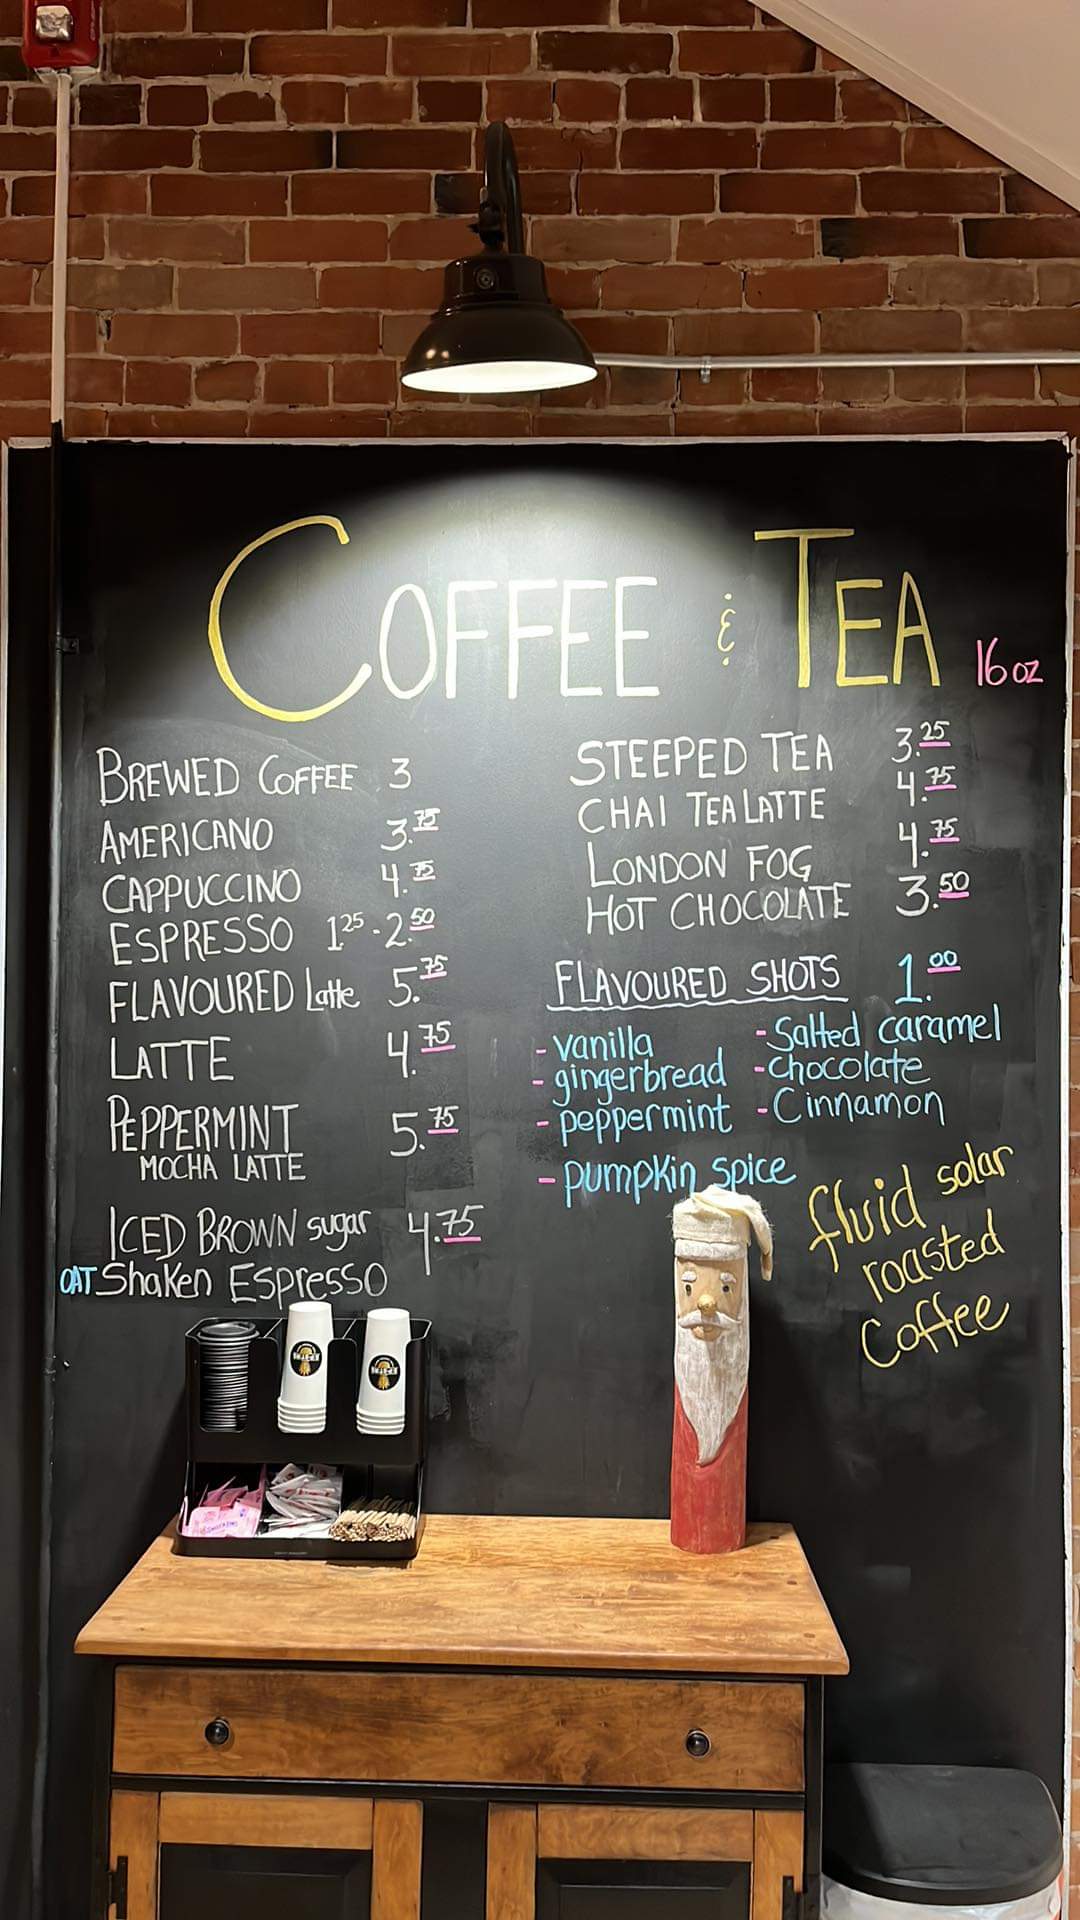 COFFEE & TEA 16 oz
BREWED COFFEE 3
AMERICANO 3.75
CAPPUCCINO 4.75
ESPRESSO 1.25 - 2.50
FLAVOURED Latte 5.75
LATTE 4.75
PEPPERMINT 5.75
MOCHA LATTE
ICED BROWN sugar 4.75
OAT Shaken Espresso
STEEPED TEA 3.25
CHAI TEA LATTE 4.75
LONDON FOG 4.75
HOT CHOCOLATE 3.50
FLAVOURED SHOTS 1.00
- vanilla
- gingerbread
- peppermint
- pumpkin spice
- Salted caramel
- chocolate
- Cinnamon
fluid solar
roasted
coffee